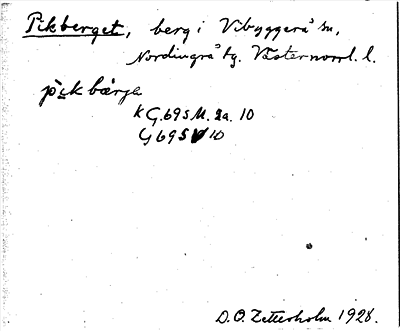 Pikberget, berg i Vibyggerå sn,
Nordingrå tg. Västernorrl. l.
pi̱ck bærje
KG.69 s M. 2a. 10
G 69 S V 10
D.O. Zetterholm 1928.